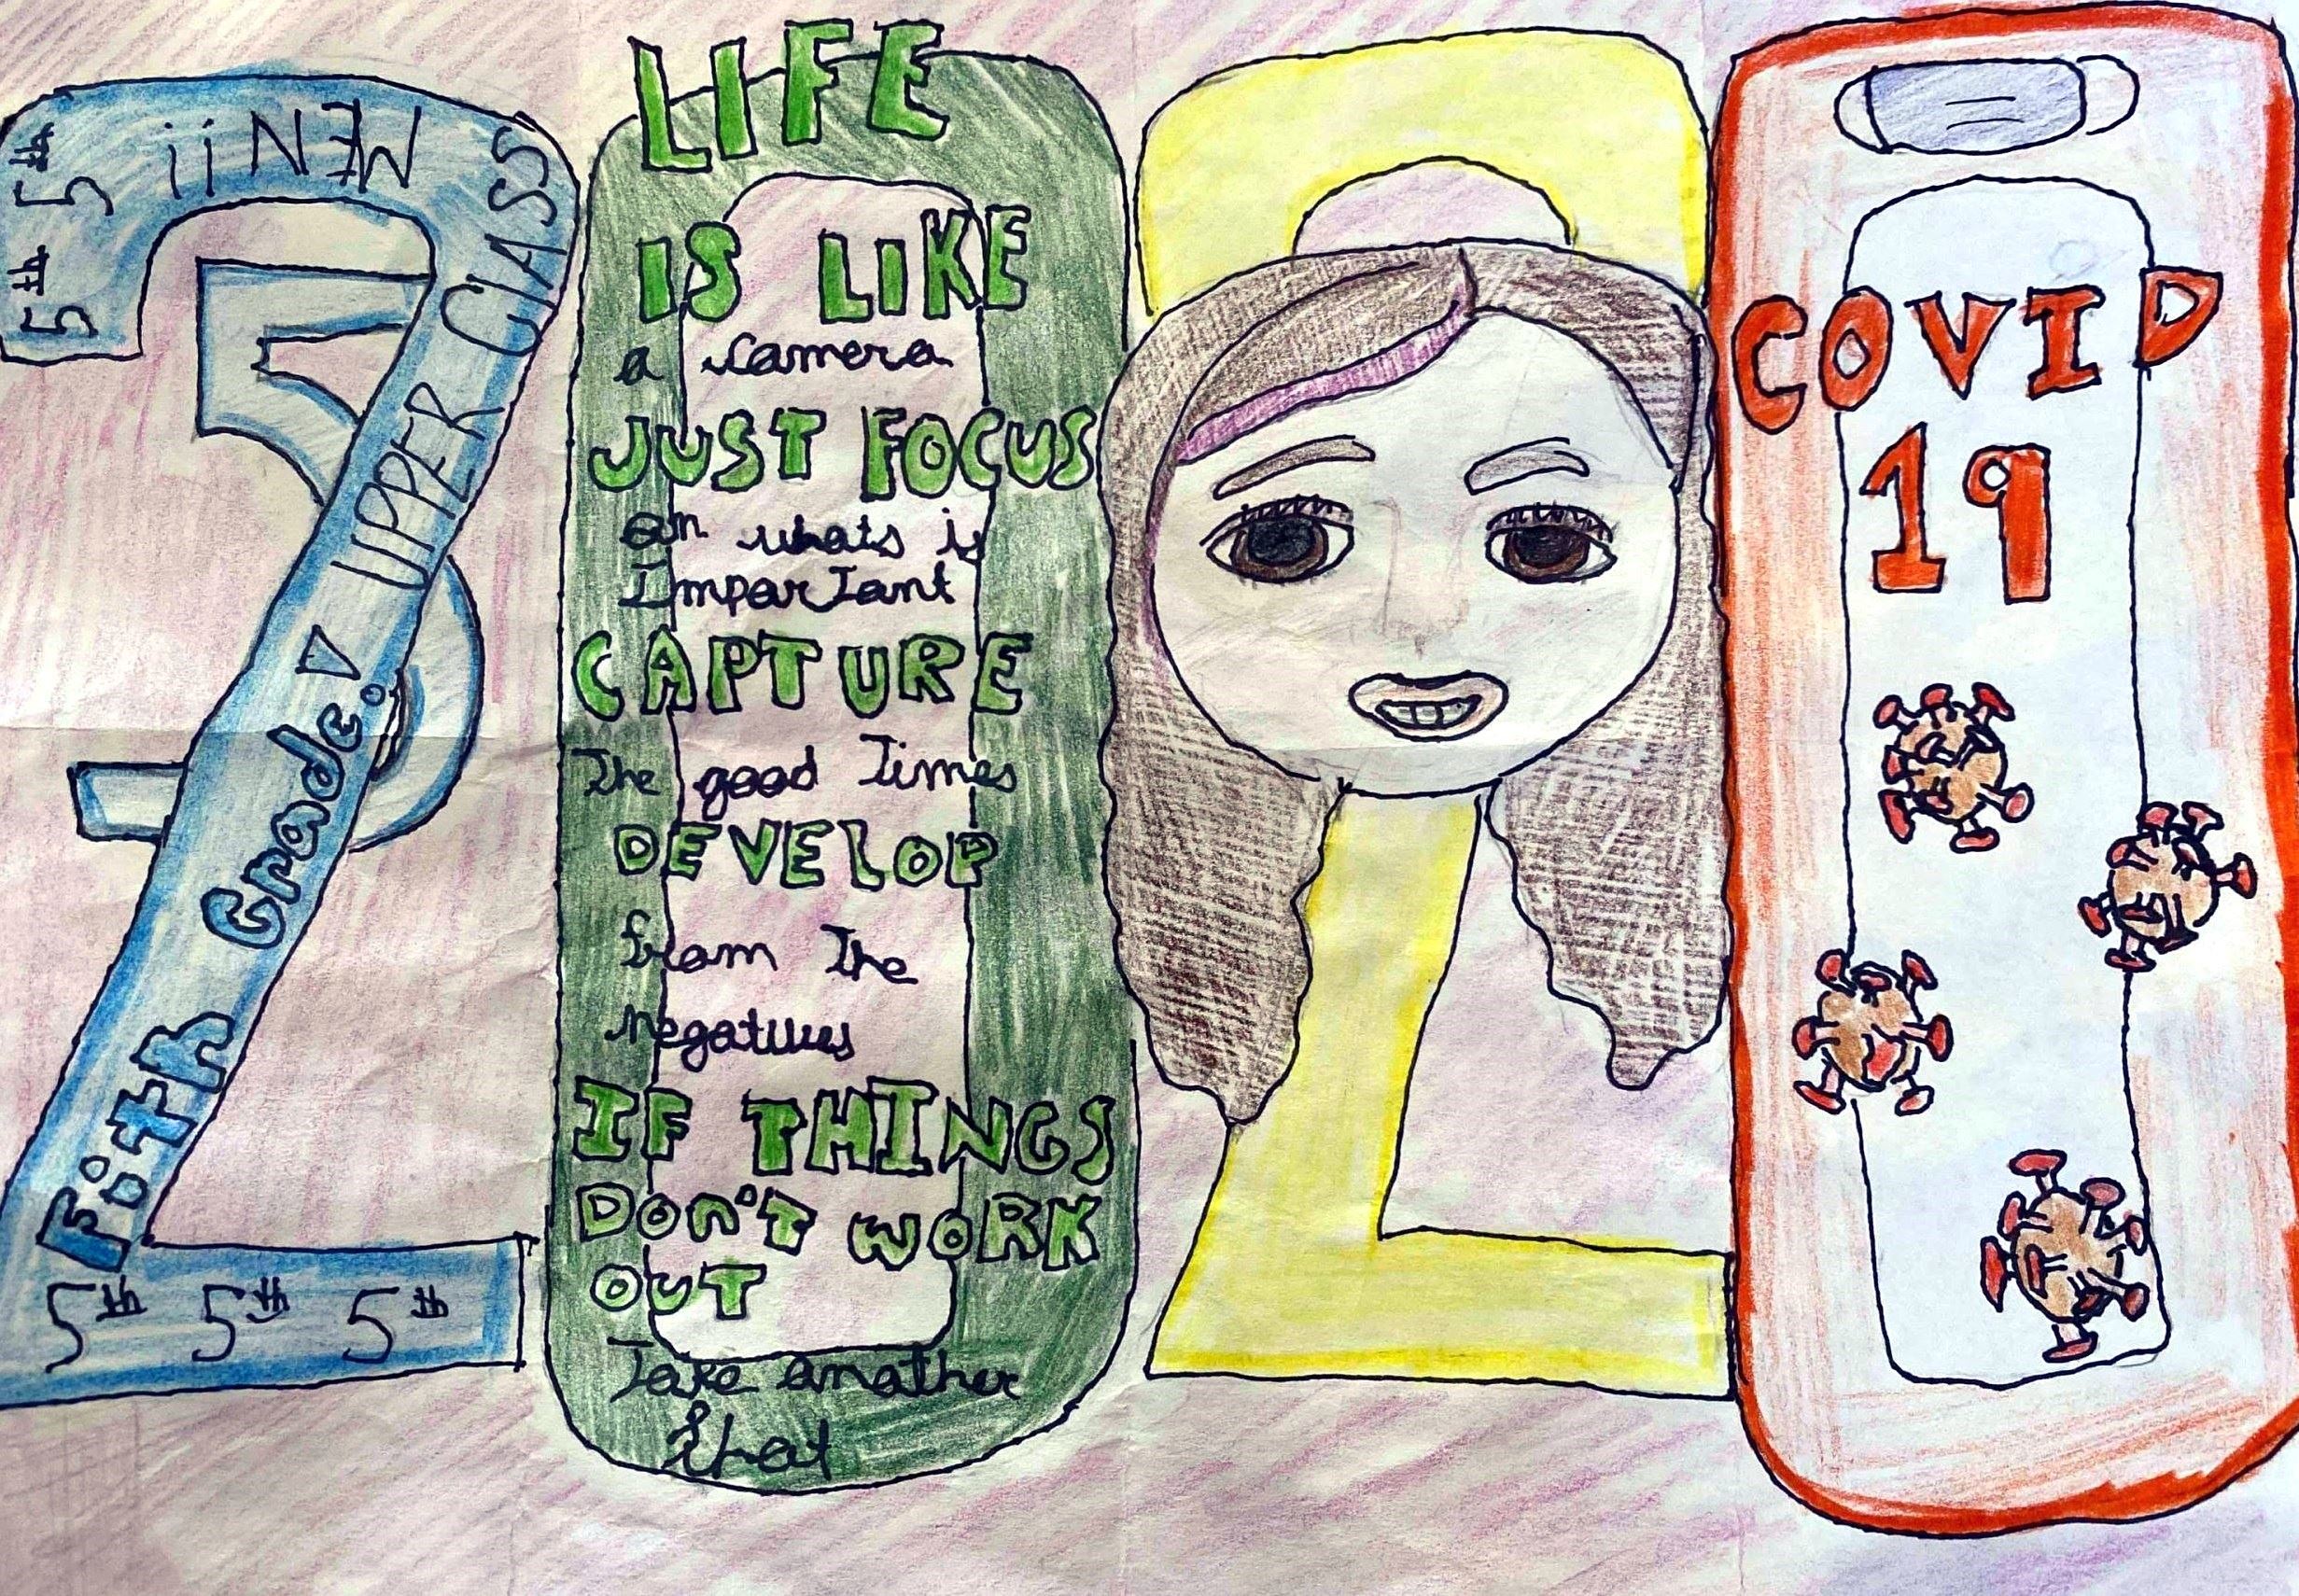 2020
5
Fith Grade! UPPER CLASS MEN!!
5th 5th
5th 5th 5th
LIFE
IS LIKE
a camera
JUST FOCUS
on whats is
Important
CAPTURE
The good Times
DEVELOP
from The
negatives
IF THINGS
DON'T WORK
OUT
Take another
Shot
COVID
19